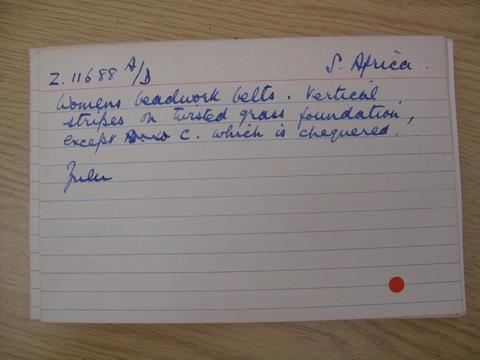 Z. 11688 A/D S. Africa.
Womens beadwork belts. Vertical
stripes on twisted grass foundation,
except C. which is chequered.
Zulu